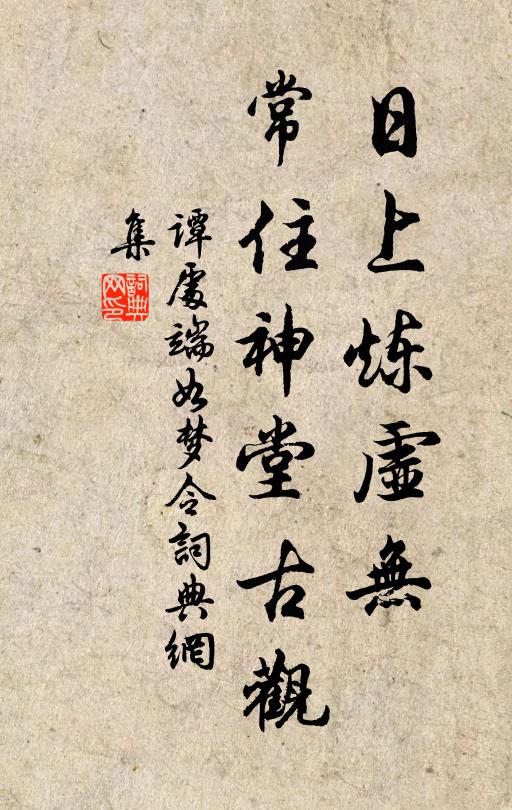 日上炼虛無
常住神堂古觀
谭處端如梦令詞典網
集
詞典
网印